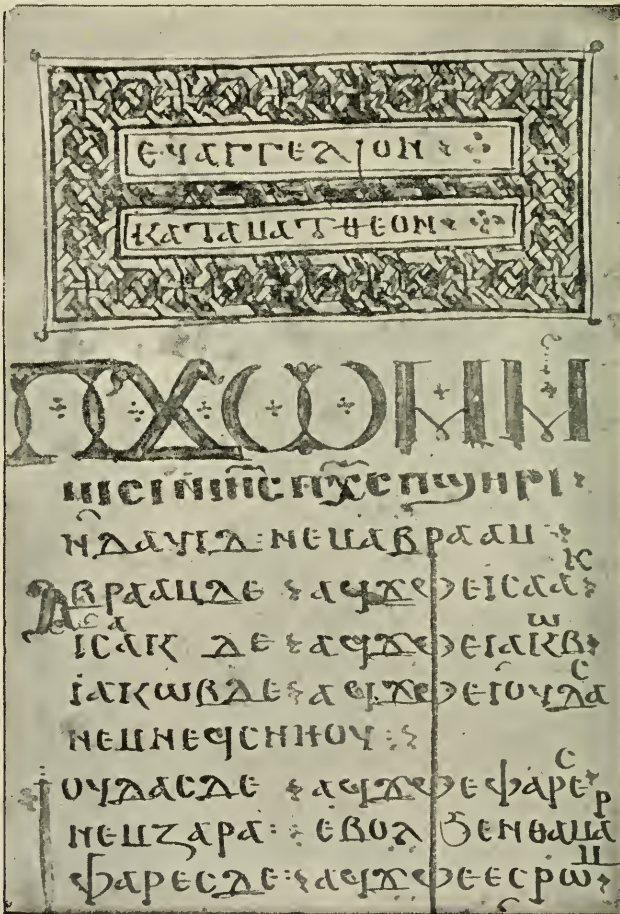 ⲉⲩⲁⲅⲅⲉⲗⲓⲟⲛ
ⲕⲁⲧⲁⲙⲁⲧⲑⲉⲟⲛ
ⲡϫⲱⲙⲙ
ⲙⲓⲥⲓⲛⲓⲏ̅ⲥ̅ ⲡⲭ̅ⲥ̅ ⲡϣⲏⲣⲓ
ⲛⲇⲁⲩⲓⲇ: ⲛⲉⲙⲁⲃⲣⲁⲁⲙ
ⲁⲃⲣⲁⲁⲙⲇⲉ ⲁϥϫⲫⲉⲓⲥⲁⲁⲕ
ⲓⲥⲁⲕ ⲇⲉ ⲁϥϫⲫⲉⲓⲁⲕⲱⲃ
ⲓⲁⲕⲱⲃⲇⲉ ⲁϥϫⲫⲉⲓⲟⲩⲇⲁⲥ
ⲛⲉⲙⲛⲉϥⲥⲛⲏⲟⲩ
ⲓⲟⲩⲇⲁⲥⲇⲉ ⲁϥϫⲫⲉⲫⲁⲣⲉⲥ
ⲛⲉⲙⲍⲁⲣⲁ: ⲉⲃⲟⲗ ϧⲉⲛⲑⲁⲙⲁⲣ
ⲫⲁⲣⲉⲥⲇⲉ: ⲁϥϫⲫⲉⲉⲥⲣⲱⲙ